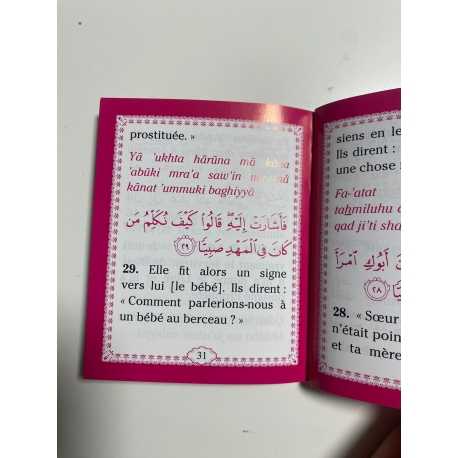 prostituée. »
Yā 'ukhta hārūna mā kāna
'abūki mra'a saw'in wa mā
kānat 'ummuki baghiyyā
فَأَشَارَتْ إِلَيْهِ قَالُوا كَيْفَ نُكَلِّمُ مَن
كَانَ فِي الْمَهْدِ صَبِيًّا ٢٩
29. Elle fit alors un signe
vers lui [le bébé]. Ils dirent :
« Comment parlerions-nous à
un bébé au berceau ? »
31
siens en le
Ils dirent :
une chose
Fa-'atat
tahmiluhu
qad ji'ti sha
أَبُوكِ امْرَأَ
٢٨
28. « Sœur
n'était poin
et ta mère